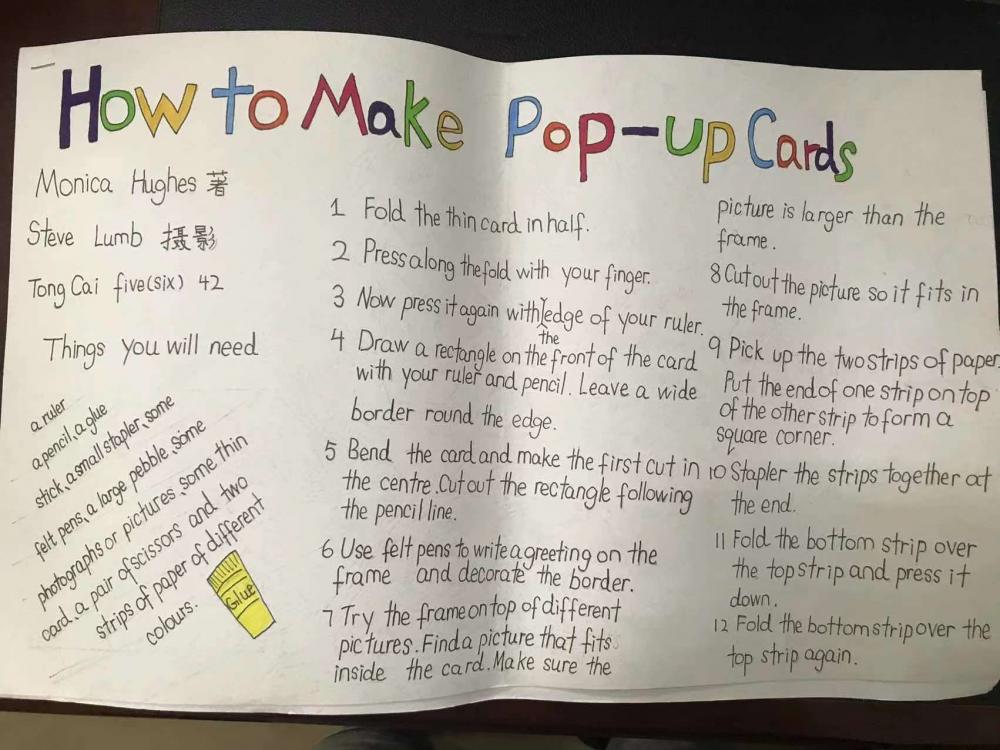 How to Make Pop-up Cards
Monica Hughes 著
Steve Lumb 摄影
Tong Cai five(six) 42
Things you will need
a ruler
a pencil、a glue
stick、a small stapler、some
felt pens、a large pebble、some
photographs or pictures、some thin
card、a pair of scissors and two
strips of paper of different
colours.
Glue
1 Fold the thin card in half.
2 Press along the fold with your finger.
3 Now press it again with the edge of your ruler.
4 Draw a rectangle on the front of the card
with your ruler and pencil. Leave a wide
border round the edge.
5 Bend the card and make the first cut in
the centre. Cut out the rectangle following
the pencil line.
6 Use felt pens to write a greeting on the
frame and decorate the border.
7 Try the frame on top of different
pictures. Find a picture that fits
inside the card. Make sure the
picture is larger than the
frame.
8 Cut out the picture so it fits in
the frame.
9 Pick up the two strips of paper.
Put the end of one strip on top
of the other strip to form a
square corner.
10 Stapler the strips together at
the end.
11 Fold the bottom strip over
the top strip and press it
down.
12 Fold the bottom strip over the
top strip again.